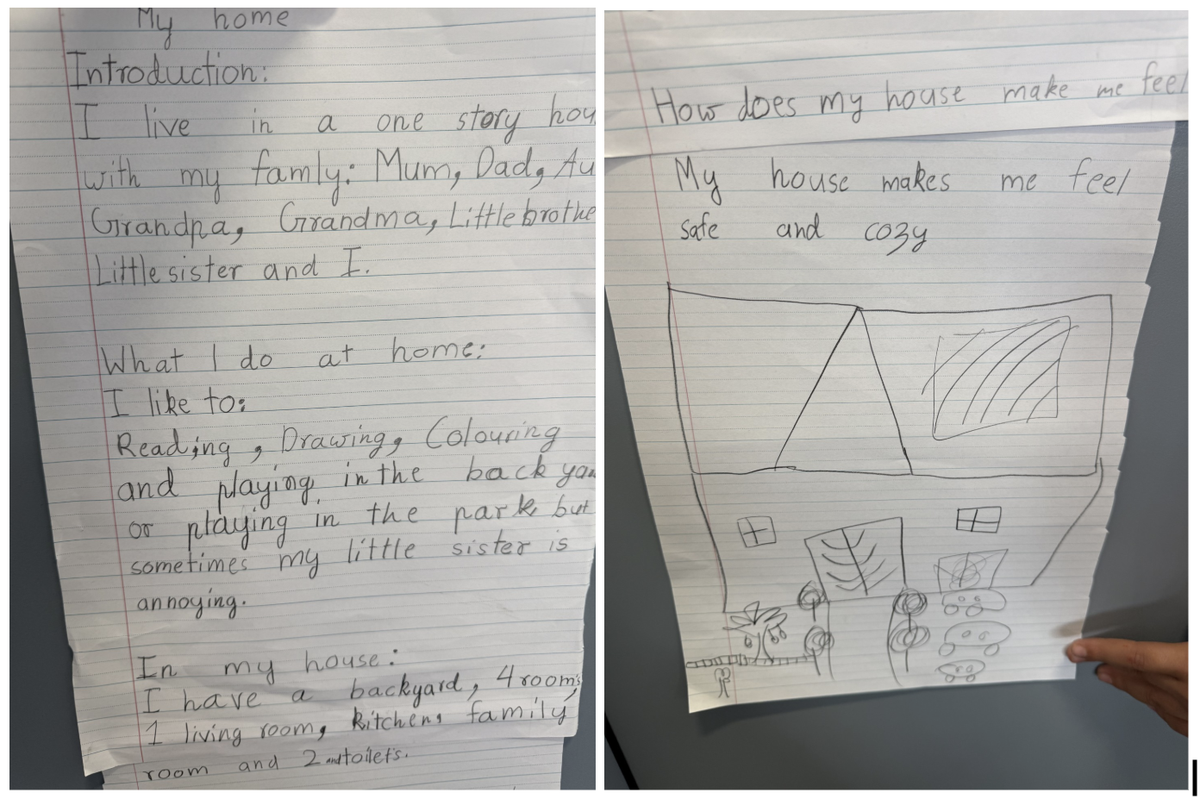 My home
Introduction:
I live in a one story hou
with my famly: Mum, Dad, Au
Grandpa, Grandma, Little brothe
Little sister and I.
What I do at home:
I like to:
Reading, Drawing, Colouring
and playing in the back yar
or playing in the park but
sometimes my little sister is
annoying.
In my house:
I have a backyard, 4 rooms,
1 living room, kitchen, family
room and 2 toilets.
How does my house make me feel
My house makes me feel
safe and cozy